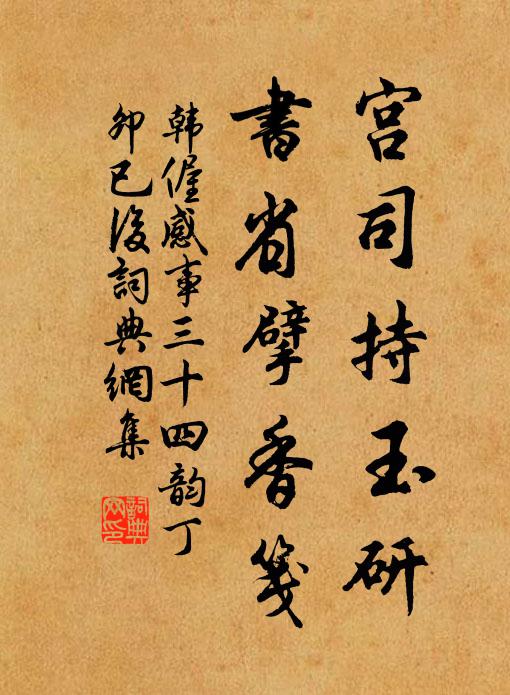 宫司持玉研
書省擘香箋
韩偓感事三十四韵丁
卯已後詞典網集
詞典
网印